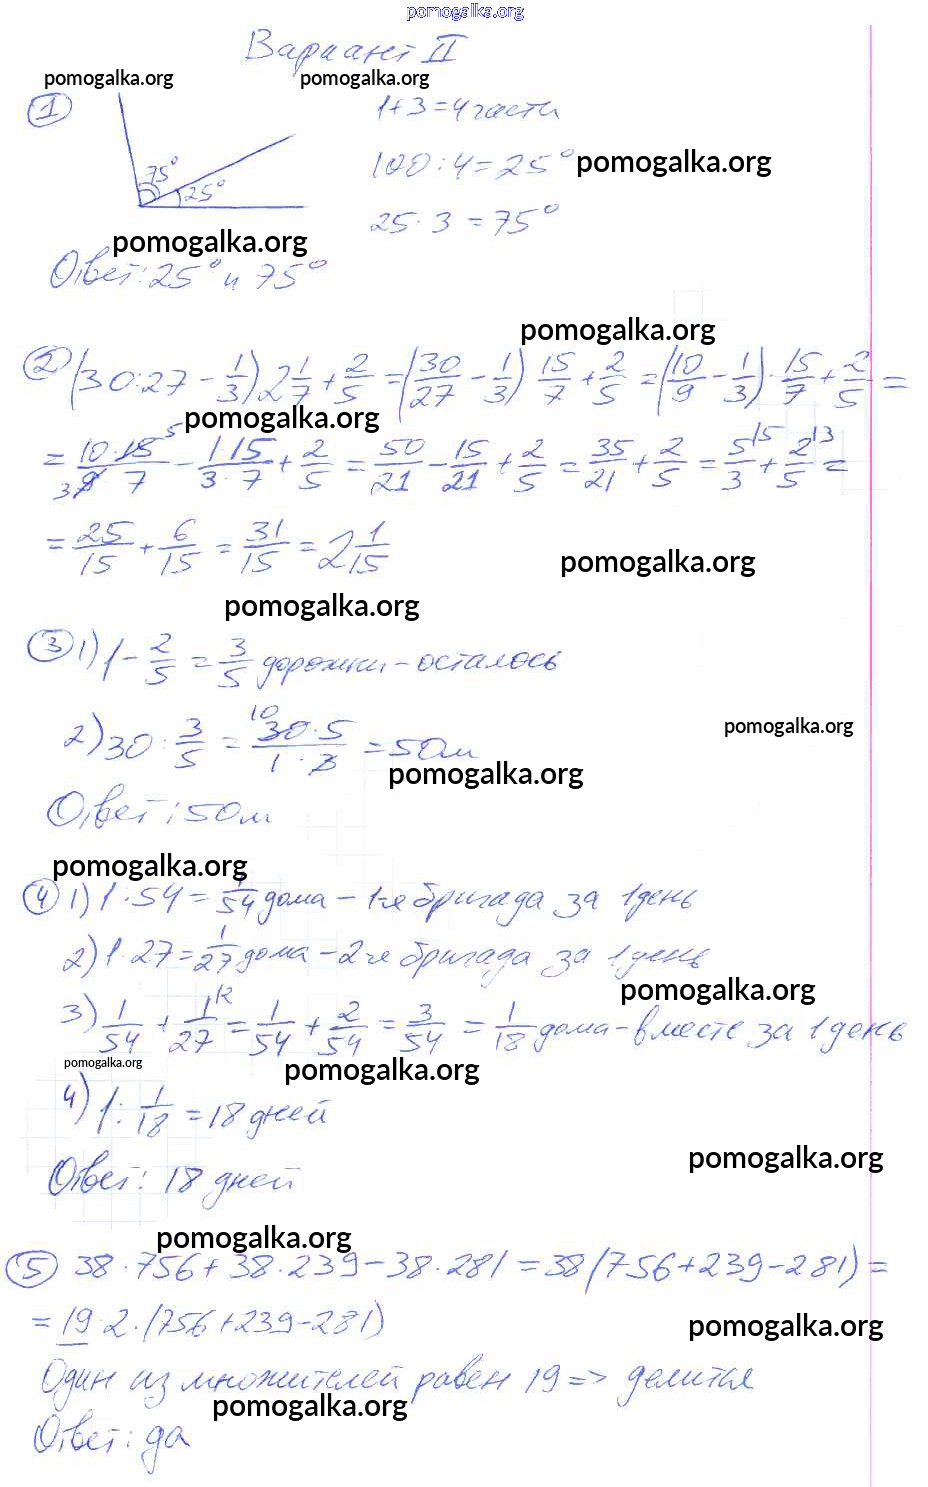 pomogalka.org
Вариант II
pomogalka.org pomogalka.org
1 1+3=4части
75° 25° 100:4=25° pomogalka.org
25·3=75°
pomogalka.org
Ответ: 25° и 75°
pomogalka.org
2 (30:27 - 1/3) 2 1/7 + 2/5 = (30/27 - 1/3) 15/7 + 2/5 = (10/9 - 1/3) · 15/7 + 2/5 =
pomogalka.org
= 10·15 5/3 9 7 - 1 15/3·7 + 2/5 = 50/21 - 15/21 + 2/5 = 35/21 + 2/5 = 5/3 |5 + 2/5 |3 =
= 25/15 + 6/15 = 31/15 = 2 1/15
pomogalka.org
pomogalka.org
3 1) 1 - 2/5 = 3/5 дорожки - осталось
pomogalka.org
2) 30 : 3/5 = 10 30·5/1·3 = 50м
pomogalka.org
Ответ: 50м
pomogalka.org
4 1) 1:54 = 1/54 дома - 1-я бригада за 1день
2) 1:27 = 1/27 дома - 2-я бригада за 1день
pomogalka.org
3) 1/54 + 1/27 |2 = 1/54 + 2/54 = 3/54 = 1/18 дома - вместе за 1день
pomogalka.org
pomogalka.org
4) 1 : 1/18 = 18 дней
pomogalka.org
Ответ: 18 дней
pomogalka.org
5 38·756+38·239-38·281=38(756+239-281)=
= 19·2·(756+239-281)
pomogalka.org
Один из множителей равен 19 => делится
pomogalka.org
Ответ: да